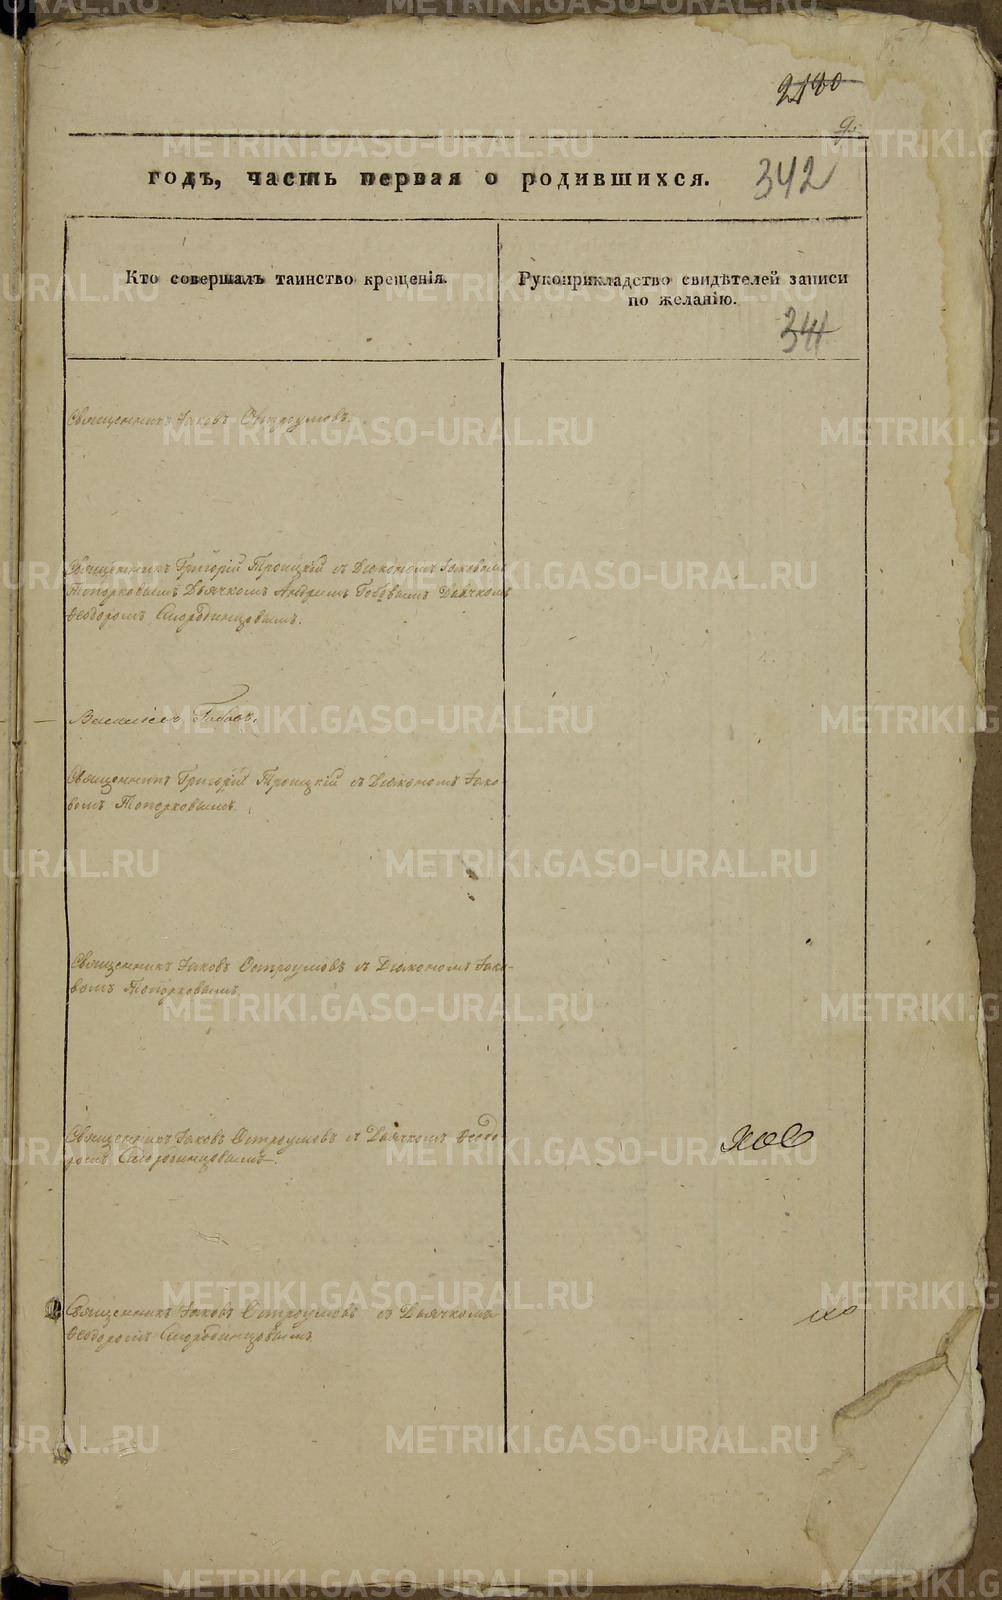 9.
342
годъ, часть первая о родившихся.
Кто совершалъ таинство крещенія.
Рукоприкладство свидѣтелей записи
по желанію.
344
Священникъ Іаковъ Остроумовъ.
Священникъ Григорій Троицкій съ Діакономъ Іаковомъ
Топорковымъ Дьячкомъ Андреемъ Дьячкомъ
Ѳеодоромъ Смородинцовымъ.
Священникъ Григорій Троицкій съ Діакономъ Іако-
вомъ Топорковымъ.
Священникъ Іаковъ Остроумовъ съ Діакономъ Іако-
вомъ Топорковымъ.
Священникъ Іаковъ Остроумовъ съ Дьячкомъ Ѳеодо-
ромъ Смородинцовымъ.
Священникъ Іаковъ Остроумовъ съ Дьячкомъ
Ѳеодоромъ Смородинцовымъ.
METRIKI.GASO-URAL.RU